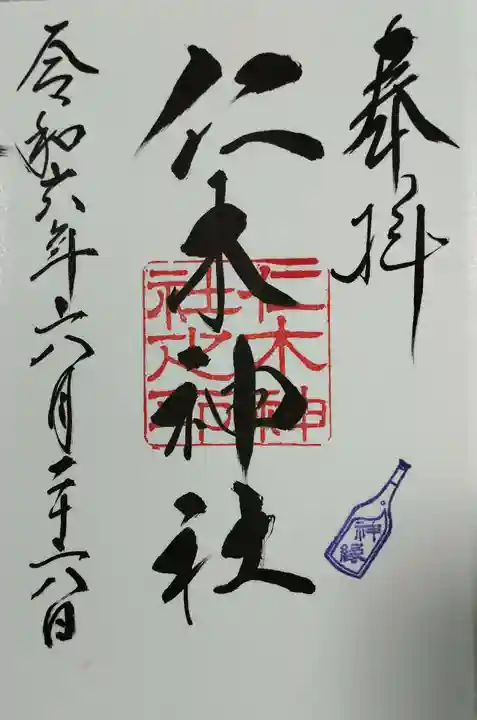 奉拝
仁木神社
仁木神
社之印
令和六年六月二十六日
神縁